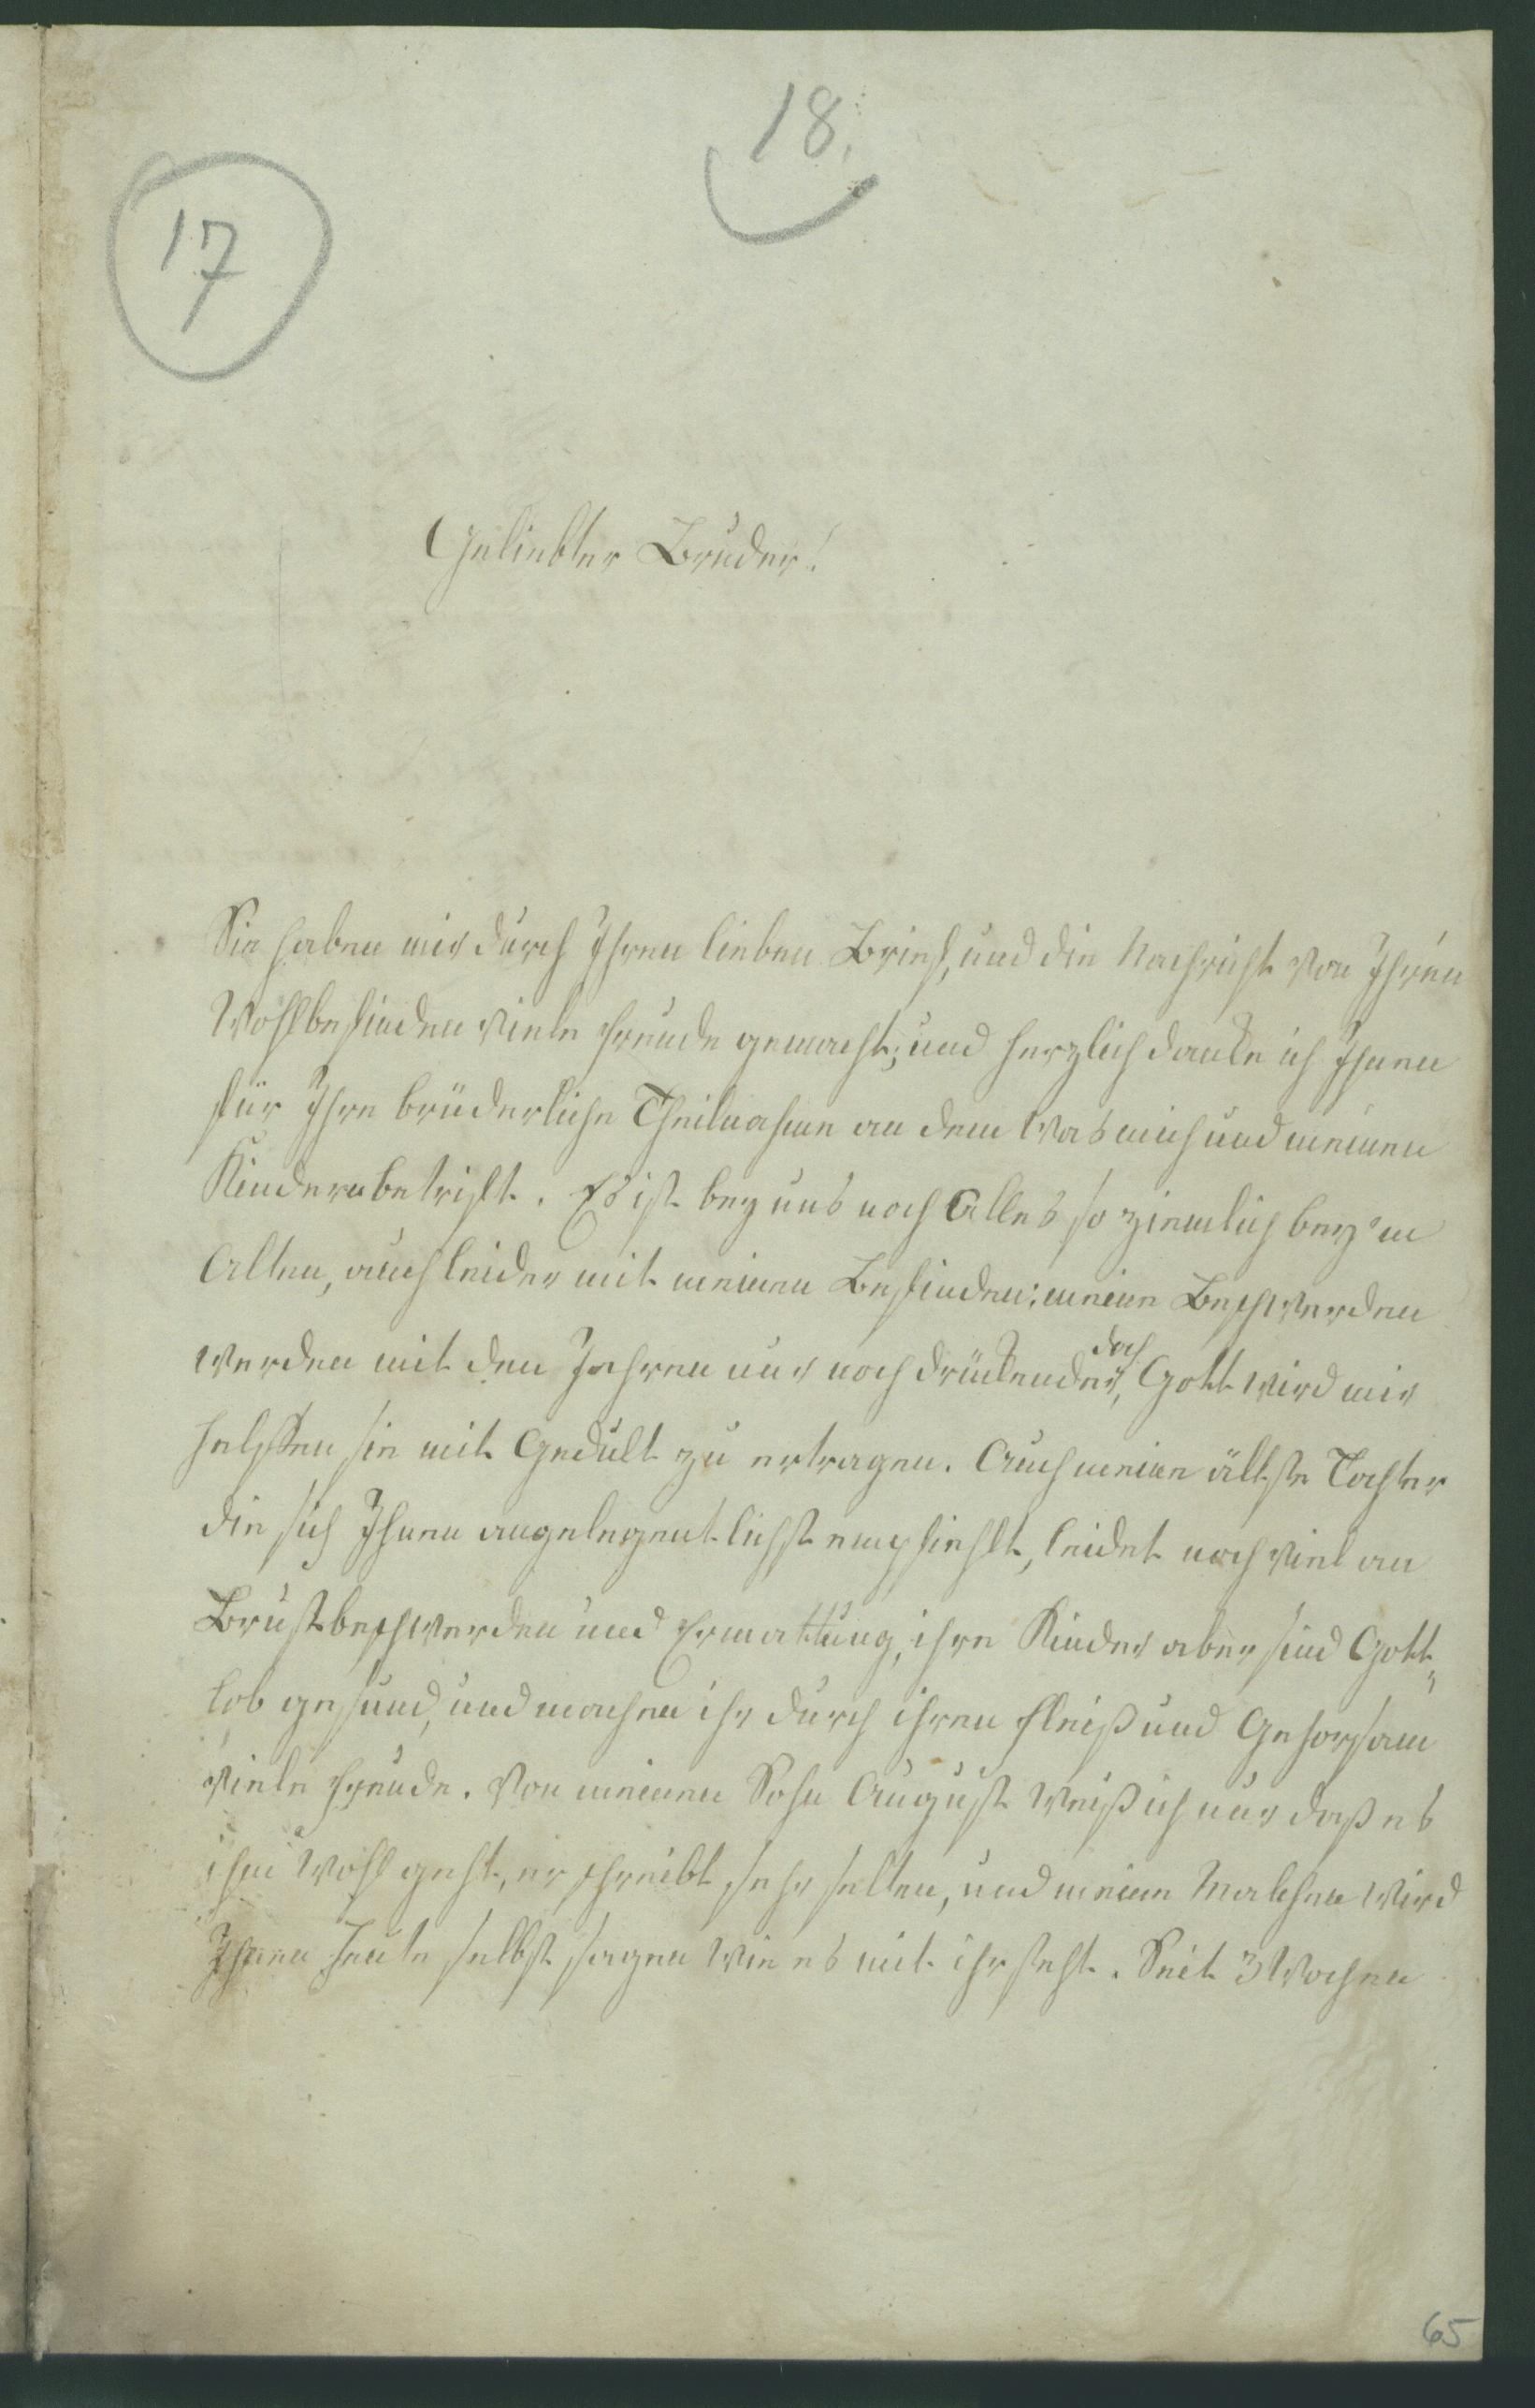 18.
17
Geliebter Bruder!
Sie haben mir durch Ihren lieben Brief, und die Nachricht von Ihren
Wohlbefinden viele Freude gemacht; und herzlich danke ich Ihnen
für Ihre brüderliche Theilnahme an dem was mich und meinen
Kindern betrifft. Es ist bey uns noch Alles so ziemlich bey'm
Alten, auch leider mit meinen Befinden; meine Beschwerden
doch
werden mit den Jahren nur noch drückender, Gott wird mir
helffen sie mit Gedult zu ertragen. Auch meine ältste Tochter
die sich Ihnen angelegentlichst empfiehlt, leidet noch viel an
Brustbeschwerden und Ermattung, ihre Kinder aber sind Gott„
lob gesund, und machen ihr durch ihren Fleiß und Gehorsam
viele Freude. Von meinen Sohn August weiß ich nur daß es
ihm wohl geht, er schreibt sehr selten, und meine Malchen wird
Ihnen heute selbst sagen wie es mit ihr steht. Seit 3 Wochen
65